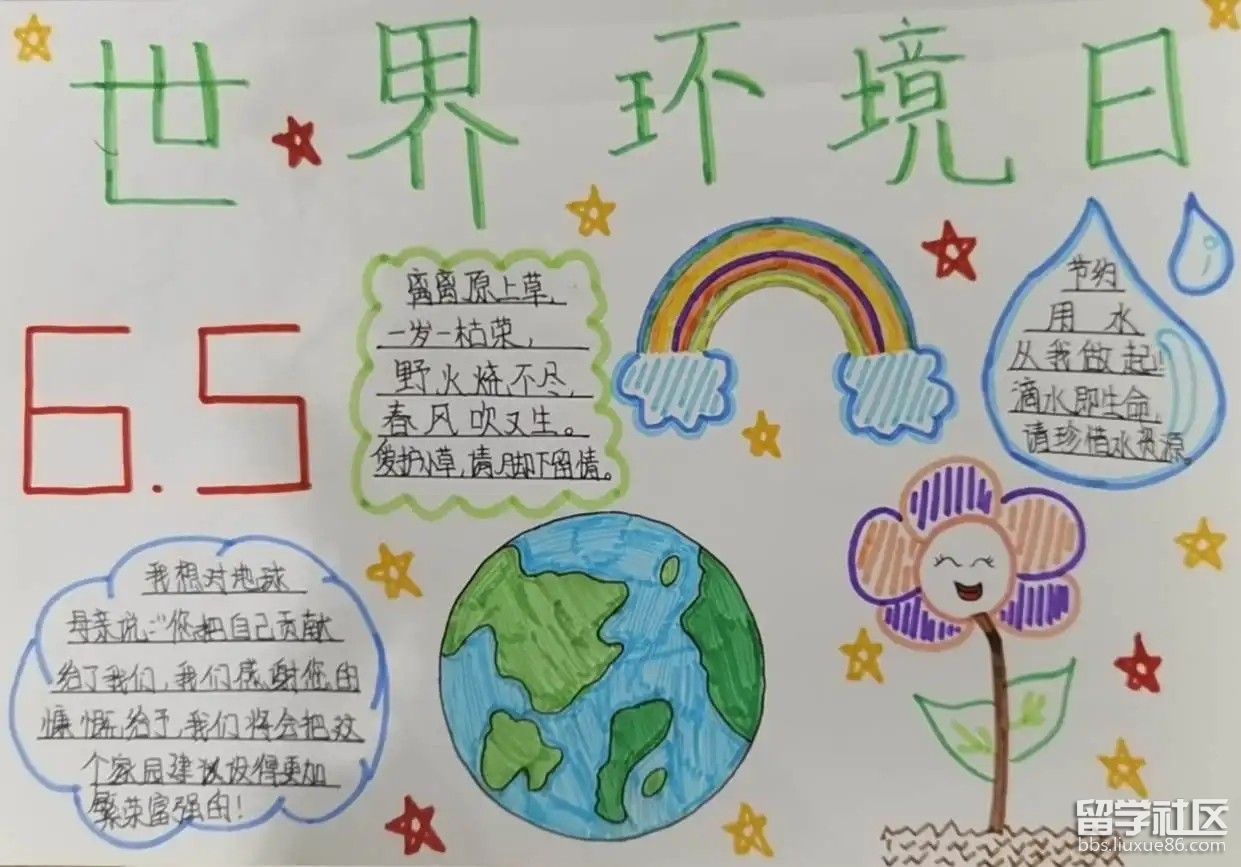 世界环境日
6.5
离离原上草,
一岁一枯荣,
野火烧不尽,
春风吹又生。
爱护小草,请脚下留情。
节约
用水
从我做起!!
滴水即生命,
请珍惜水资源。
我想对地球
母亲说:"您把自己贡献
给了我们,我们感谢您的
慷慨给予,我们将会把这
个家园建设得更加
繁荣富强的!
留学社区
bbs.liuxue86.com